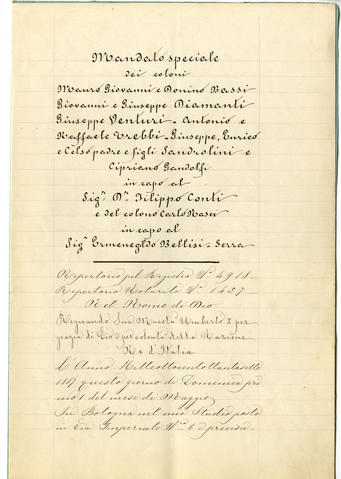 Mandato speciale
dei coloni
Mauro Giovanni e Donino Bassi
Giovanni e Giuseppe Diamanti
Giuseppe Venturi - Antonio e
Raffaele Trebbi - Giuseppe, Enrico
e Celso padre e figli Sandrolini e
Cipriano Gandolfi
in capo al
Sigr. Dr. Filippo Conti
e del colono Carlo Naser
in capo al
Sigr Ermenegildo Bellisi - Serra
Repertorio pel Registro No. 4918 -
Repertorio Notarile No. 1637 -
Nel Nome di Dio
Regnando Sua Maestà Umberto I per
grazia di Dio e per volontà della Nazione
Re d'Italia
L'Anno Milleottocentottantasette
1887 questo giorno di Domenica pri
mo 1 del mese di Maggio,
In Bologna nel mio Studio posto
in Via Imperiale No. 6 e precisa-